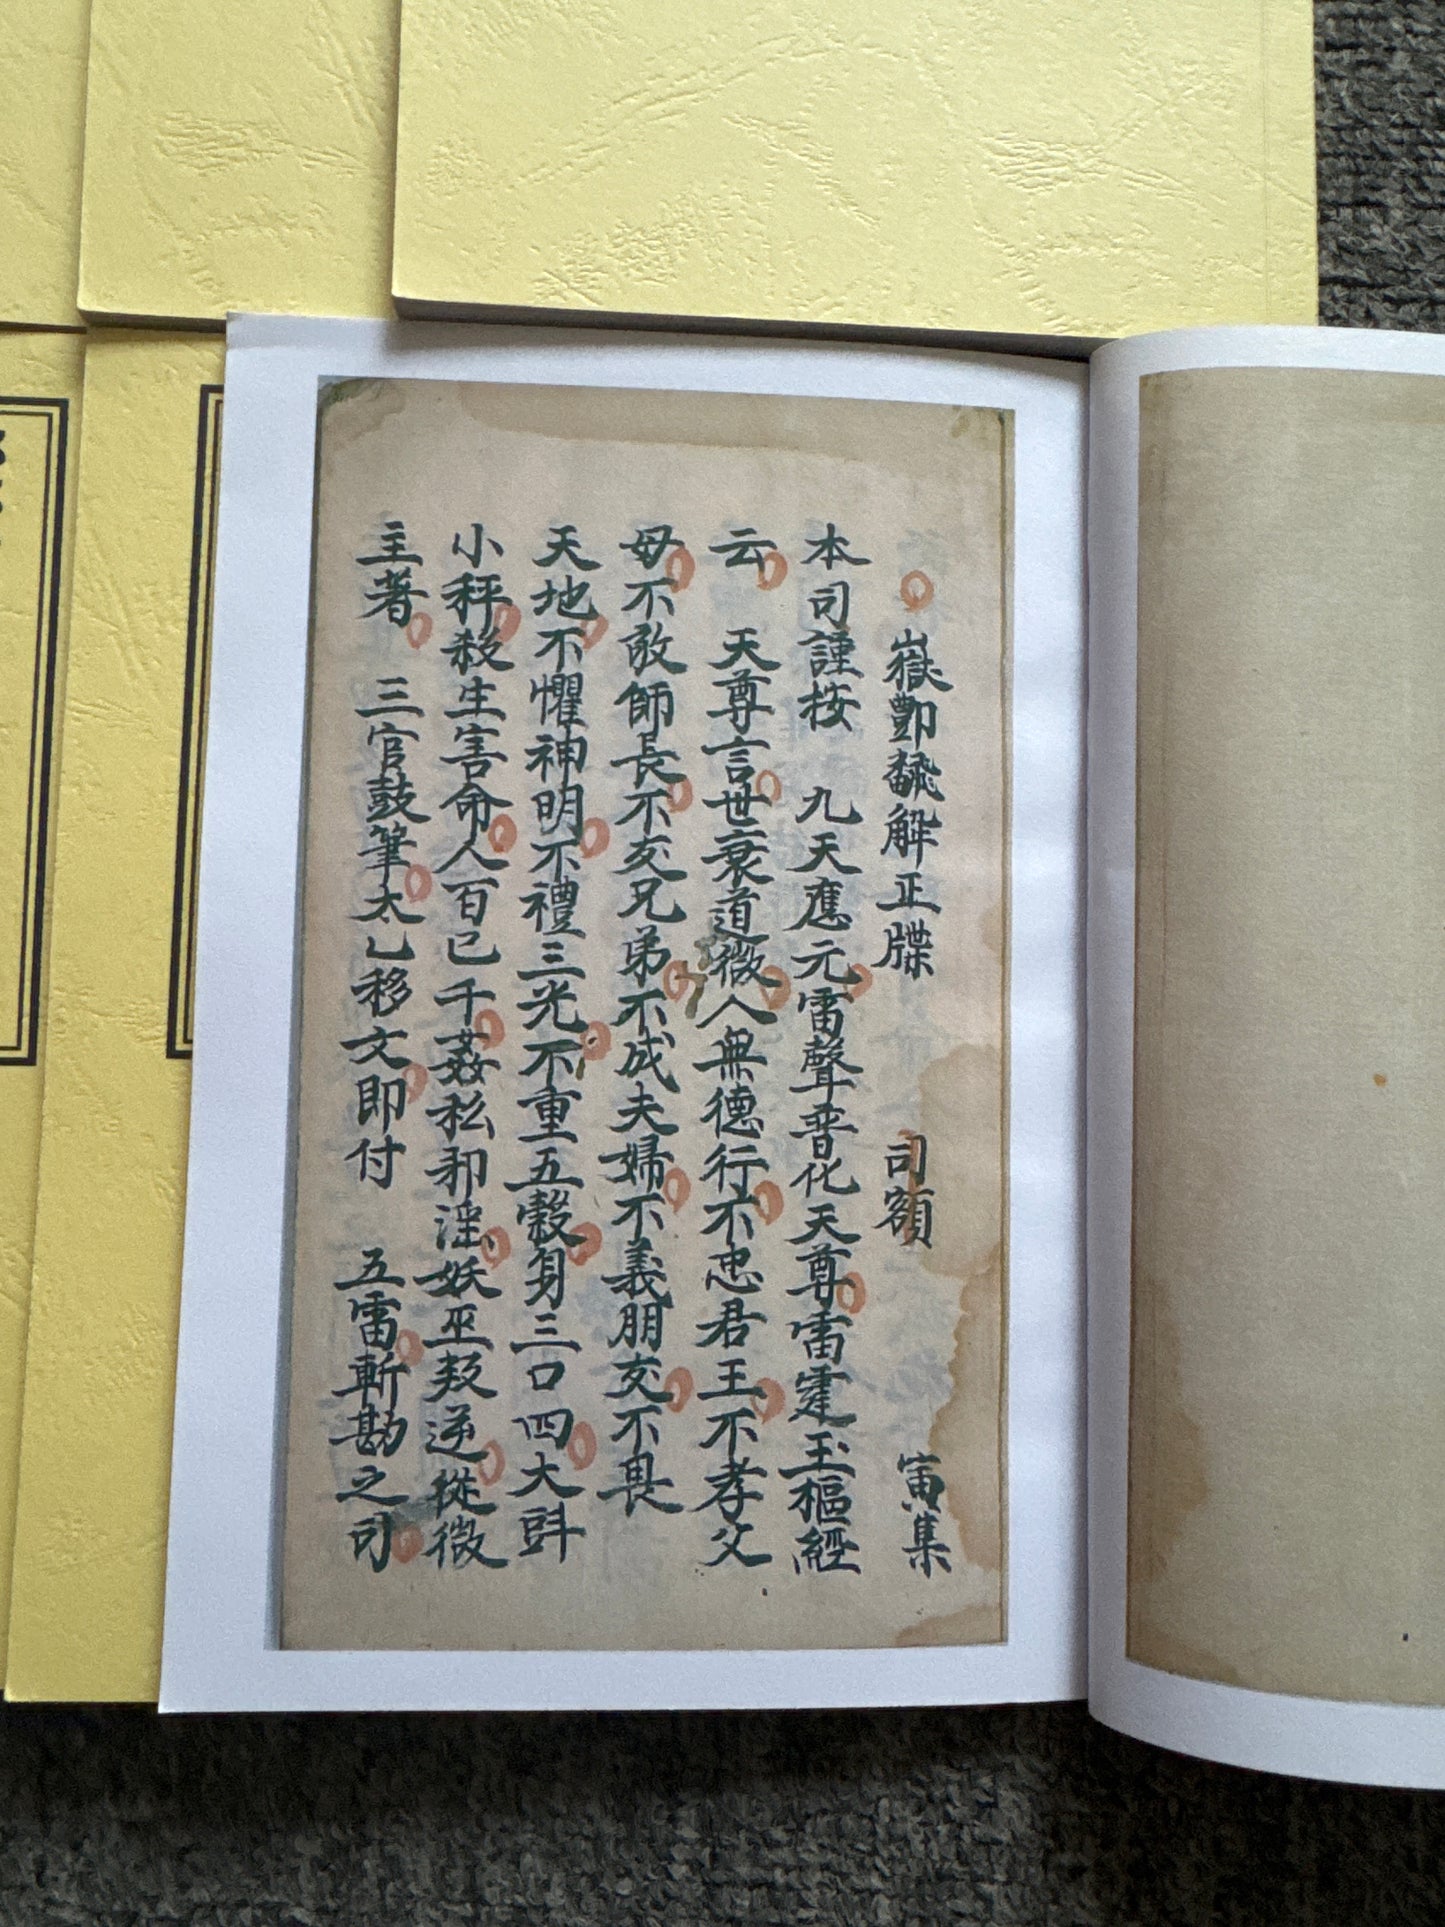 嶽酆翻解正牒 司額 寅集
本司謹按 九天應元雷聲普化天尊雷霆玉樞經
云 天尊言世衰道微人無德行不忠君王不孝父
母不敬師長不友兄弟不成夫婦不義朋友不畏
天地不懼神明不禮三光不重五穀身三口四大斗
小秤殺生害命人百己千姦私邪淫妖巫叛逆從微
主著 三官鼓筆太乙移文即付 五雷斬勘之司